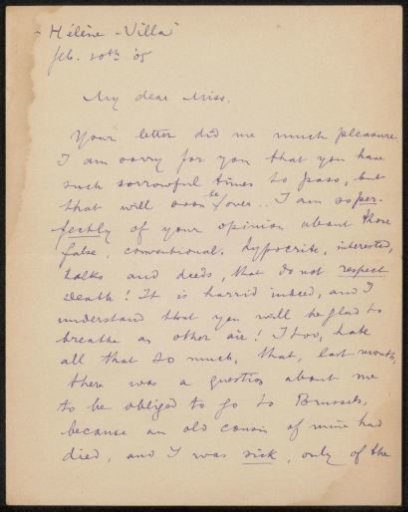 "Hélène-Villa"
feb. 20th '05
My dear Miss.
Your letter did me much pleasure.
I am sorry for you that you have
such sorrowful times to pass, but
that will soon be over.. I am so per-
fectly of your opinion about those
false, conventional, hypocrite, interested,
talks and deeds, that do not respect
Death! It is horrid indeed, and I
understand that you will be glad to
breathe an other air! I too, hate
all that so much, that, last month,
there was a question about me
to be obliged to go to Brussels,
because an old cousin of mine had
died, and I was sick, only of the